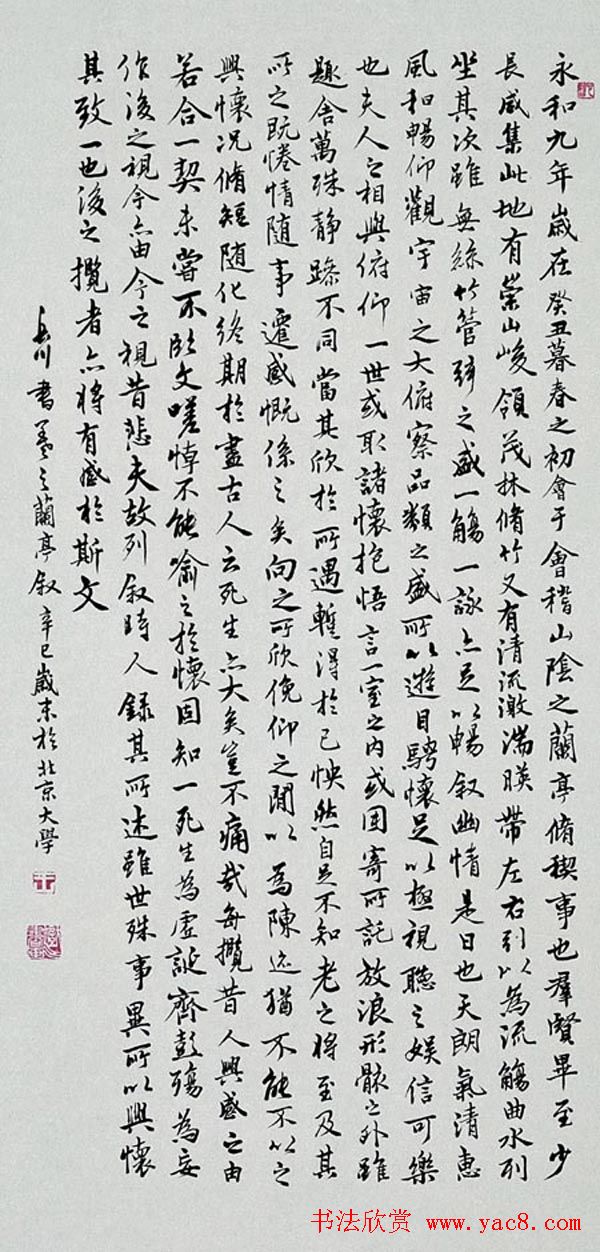 永和九年歲在癸丑暮春之初會于會稽山陰之蘭亭脩稧事也羣賢畢至少
長咸集此地有崇山峻領茂林脩竹又有清流激湍暎帶左右引以為流觴曲水列
坐其次雖無絲竹管弦之盛一觴一詠亦足以暢叙幽情是日也天朗氣清惠
風和暢仰觀宇宙之大俯察品類之盛所以遊目騁懷足以極視聽之娛信可樂
也夫人之相與俯仰一世或取諸懷抱悟言一室之內或因寄所託放浪形骸之外雖
趣舍萬殊静躁不同當其欣於所遇暫得於己怏然自足不知老之將至及其
所之既惓情隨事遷感慨係之矣向之所欣俛仰之閒以為陳迹猶不能不以之
興懷況脩短隨化終期於盡古人云死生亦大矣豈不痛哉每攬昔人興感之由
若合一契未嘗不臨文嗟悼不能喻之於懷固知一死生為虛誕齊彭殤為妄
作後之視今亦由今之視昔悲夫故列叙時人錄其所述雖世殊事異所以興懷
其致一也後之攬者亦將有感於斯文
岳川書羲之蘭亭叙辛巳歲末於北京大學
书法欣赏 www.yac8.com